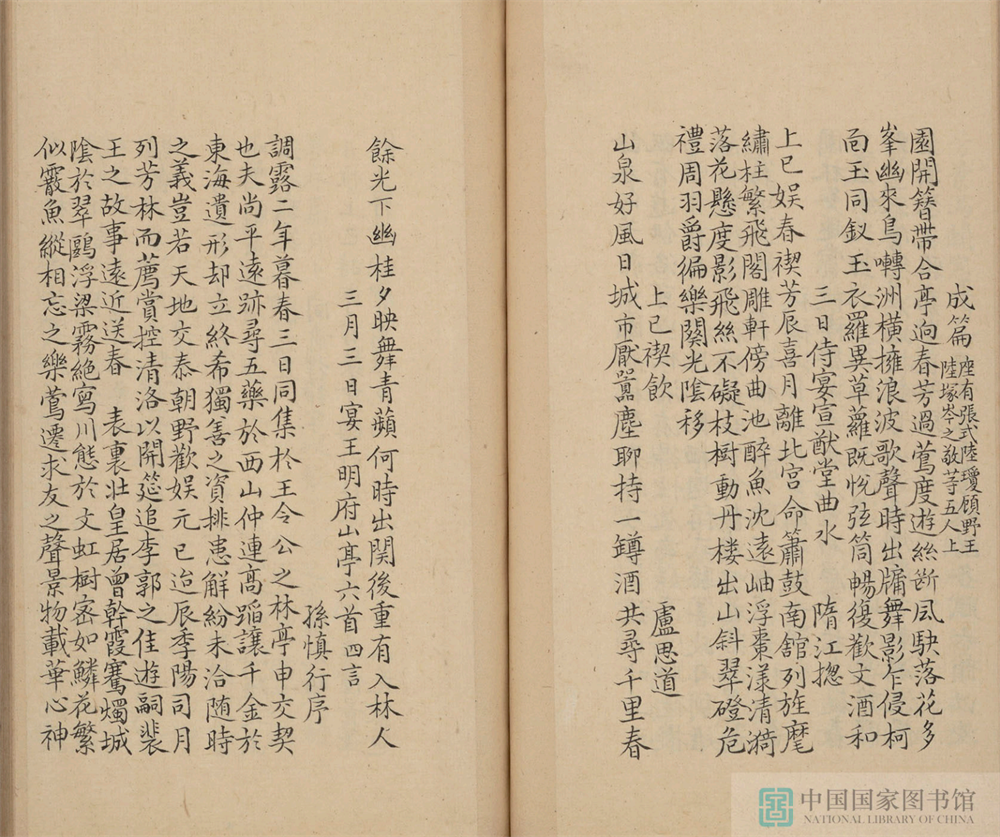 成篇座有張式陸瓊顧野王
陸塚岑之敬等五人上
園開簪帶合亭迥春芳過鶯度遊絲斷風駛落花多
峯幽來鳥囀洲橫擁浪波歌聲時出牖舞影乍侵柯
面玉同釵玉衣羅異草蘿既悅弦筒暢復歡文酒和
三日侍宴宣猷堂曲水 隋江揔
上巳娛春禊芳辰喜月離北宮命簫鼓南舘列旌麾
繡柱繁飛閣雕軒傍曲池醉魚沈遠岫浮棗漾清漪
落花懸度影飛絲不礙枝樹動丹樓出山斜翠磴危
禮周羽爵徧樂闋光陰移
上巳禊飲 盧思道
山泉好風日城市厭囂塵聊持一鐏酒共尋千里春
餘光下幽桂夕映舞青蘋何時出関後重有入林人
三月三日宴王明府山亭六首四言
孫慎行序
調露二年暮春三日同集於王令公之林亭申交契
也夫尚平遠跡尋五藥於西山仲連高蹈讓千金於
東海遺形却立終希獨善之資排患解紛未洽随時
之義豈若天地交泰朝野歡娛元巳迨辰季陽司月
列芳林而薦賞控清洛以開筵追李郭之佳遊嗣裴
王之故事遠近送春 表裏壮皇居曾幹霞騫燭城
陰於翠鷗浮梁霧絶寫川態於文虹樹宻如鱗花繁
似霰魚縱相忘之樂鶯遷求友之聲景物載華心神
中国国家图书馆
NATIONAL LIBRARY OF CHINA